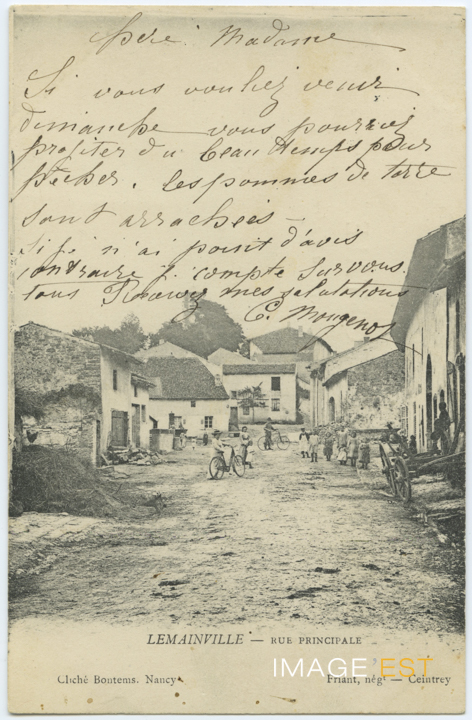 Chère Madame
Si vous vouliez venir
dimanche vous pourriez
profiter du beau temps pour
pêcher. les pommes de terre
sont arrachées –
si je n'ai point d'avis
contraire je compte sur vous
tous Recevez mes salutations
C. Mougenot
LEMAINVILLE — RUE PRINCIPALE
Cliché Bontems. Nancy
Friant, négt — Ceintrey
IMAGE EST